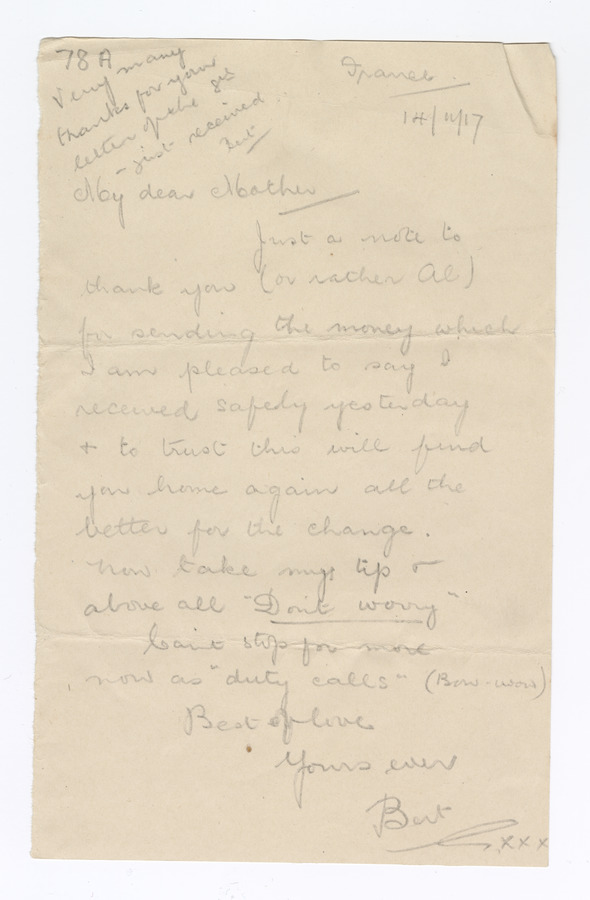 78A
Very many
thanks for your
letter of the 9th
- just received
Bert
France.
14/11/17
My dear Mother
Just a note to
thank you (or rather Al)
for sending the money which
I am pleased to say I
received safely yesterday
+ to trust this will find
you home again all the
better for the change.
Now take my tip &
above all "Don't worry"
Can't stop for more
now as "duty calls" (Bow-wow)
Best of love
Yours ever
Bert
xxx